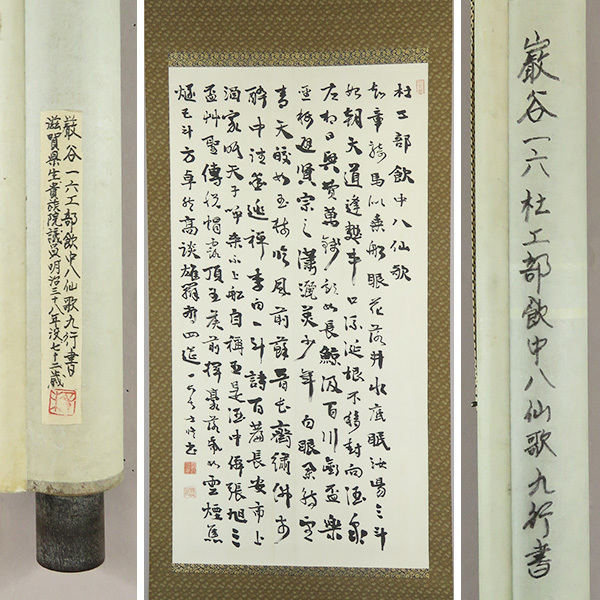 巌谷一六工部飲中八仙歌九行書
滋賀県生貴族院議員明治三十八年没七十二歳
杜工部飲中八仙歌
知章騎馬似乘船眼花落井水底眠汝陽三斗
始朝天道逢麴車口流涎恨不移封向酒泉
左相日興費萬錢飲如長鯨汲百川銜盃樂
聖称避賢宗之瀟灑美少年白眼舉觴望
青天皎如玉樹臨風前蘇晋長齋繡佛前
醉中往〻愛逃禪李白一斗詩百篇長安市上
酒家眠天子呼来不上船自稱臣是酒中僊張旭三
盃艸聖傳脱帽露頂王公前揮毫落紙如雲煙焦
遂五斗方卓然高談雄辯驚四筵 一六居士修書
巌谷一六杜工部飲中八仙歌九行書